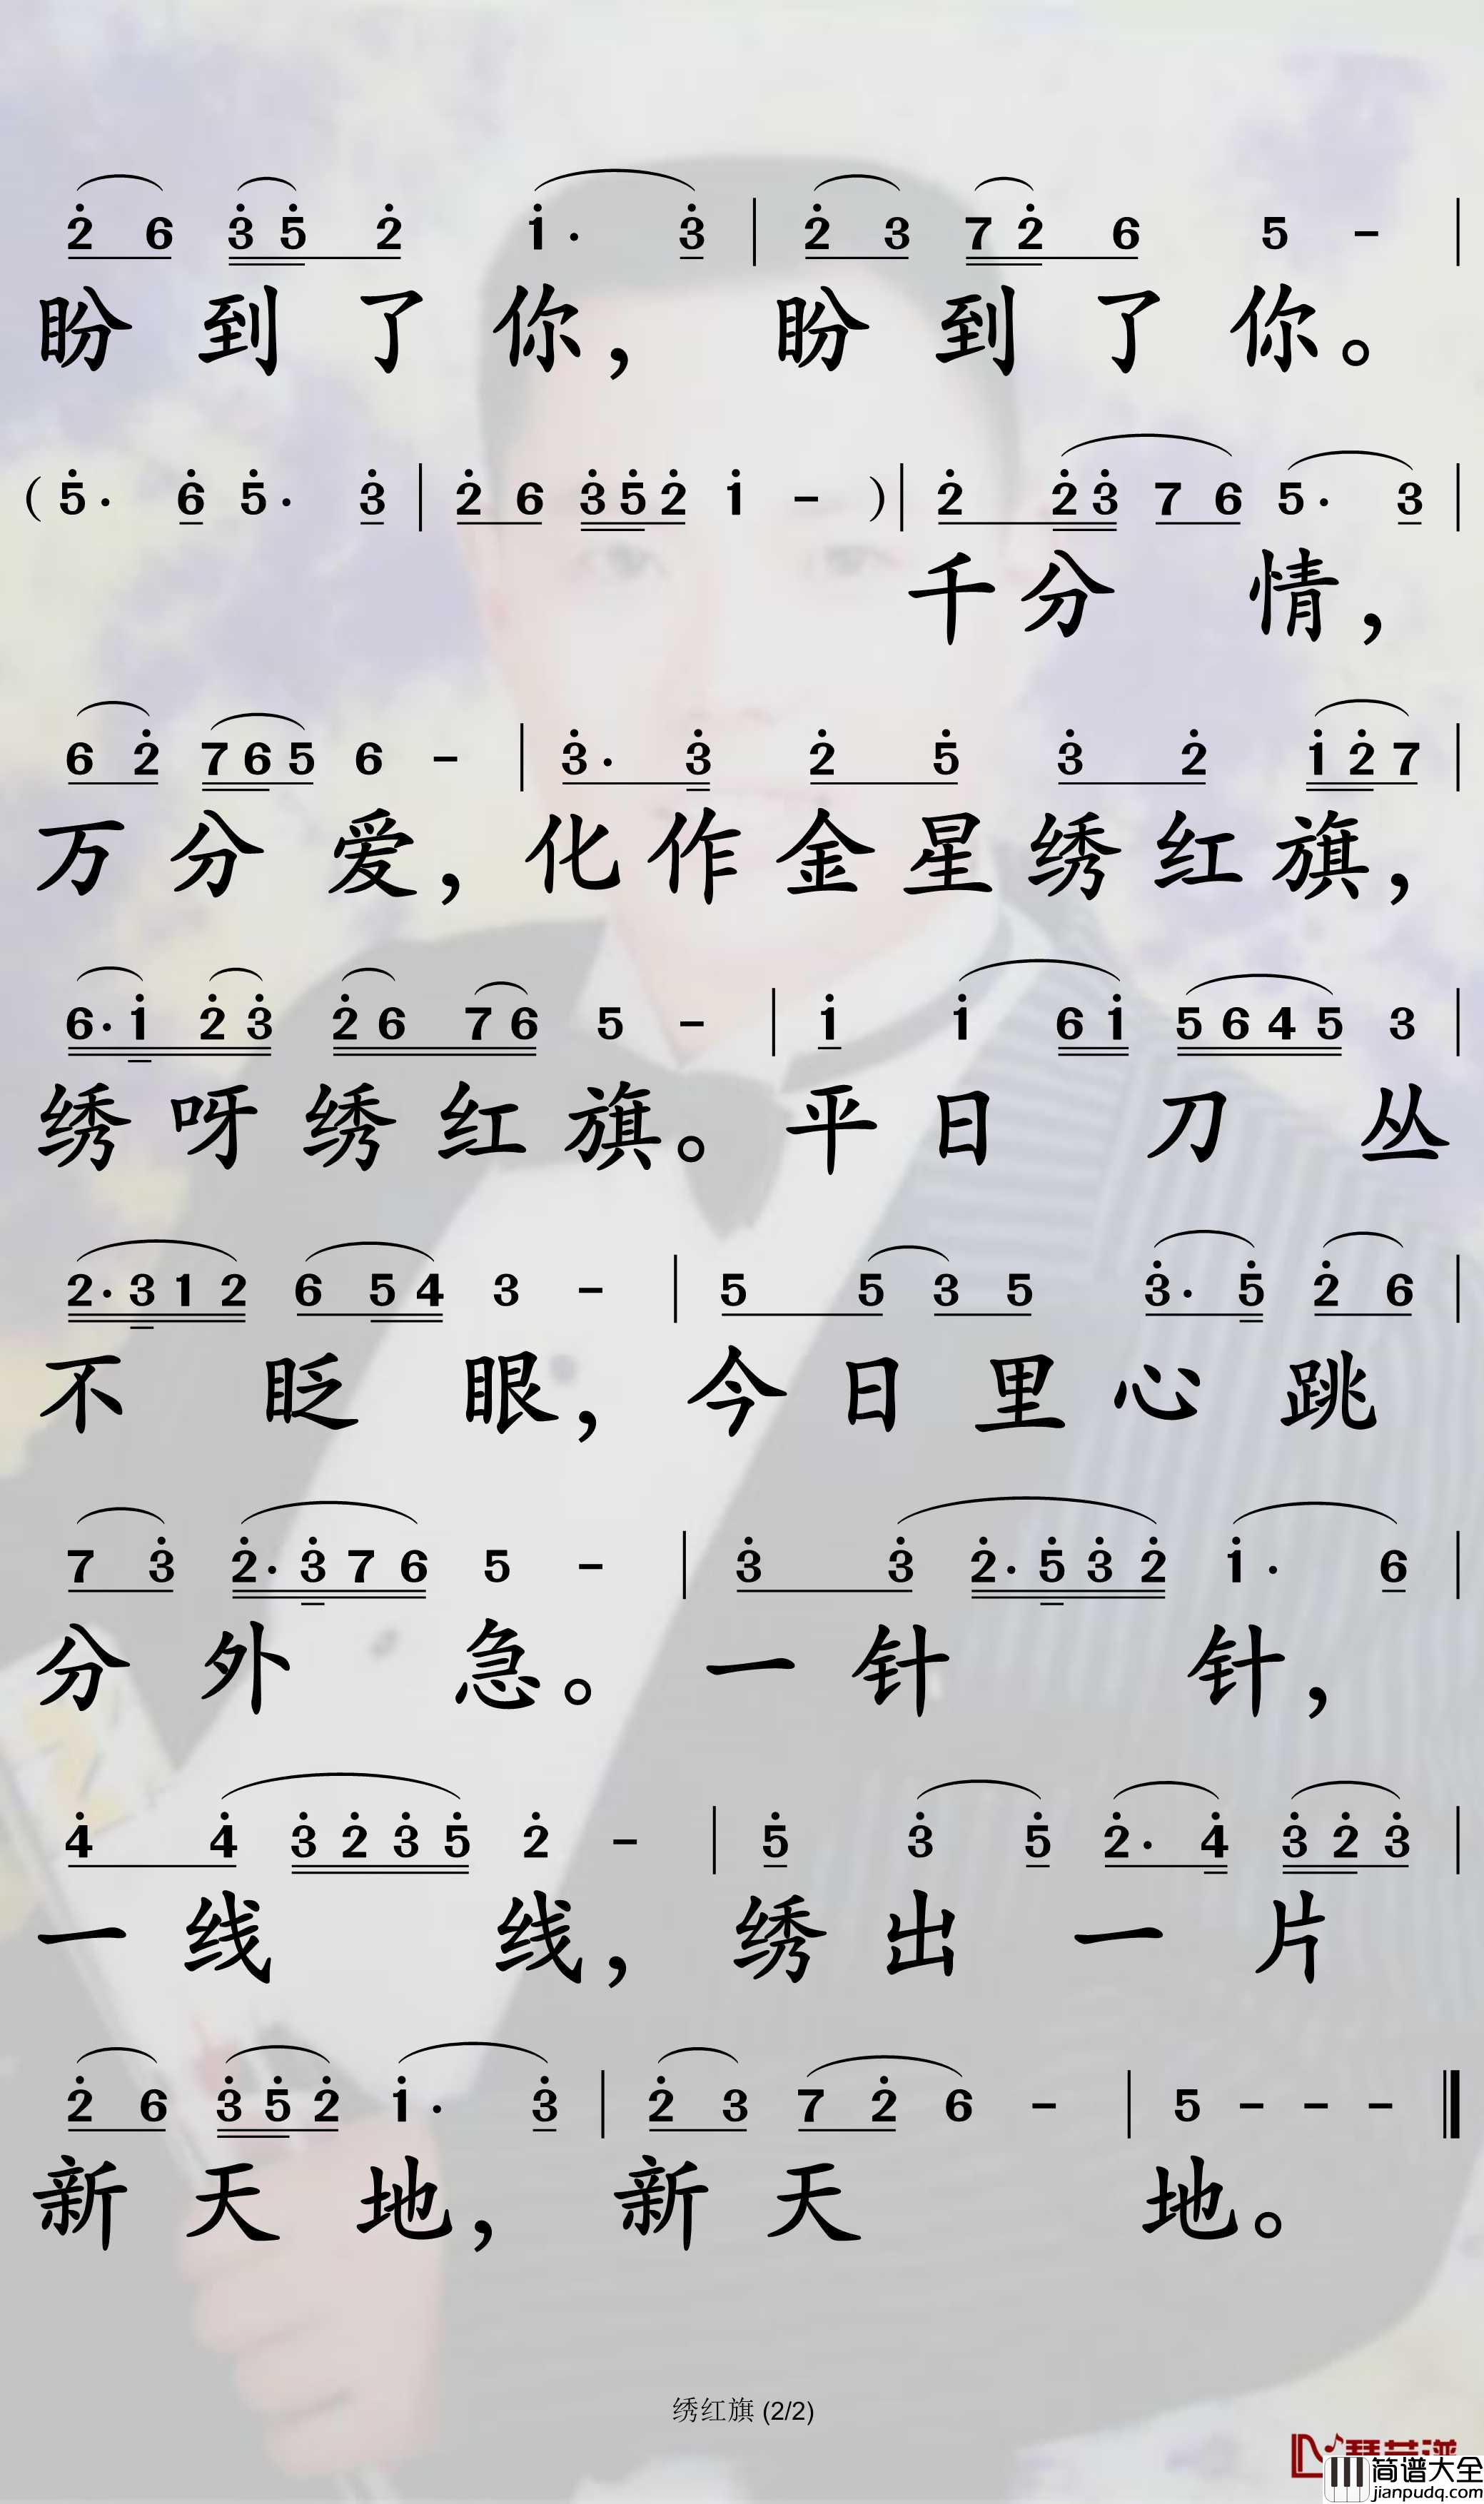 2 6 3 5 2 1· 3 | 2 3 7 2 6 5 - |
盼到了你，盼到了你。
(5· 6 5· 3 | 2 6 3 5 2 1 - )| 2 2 3 7 6 5· 3 |
千分情，
6 2 7 6 5 6 - | 3· 3 2 5 3 2 1 2 7 |
万分爱，化作金星绣红旗，
6· 1 2 3 2 6 7 6 5 - | 1 1 6 1 5 6 4 5 3 |
绣呀绣红旗。平日刀丛
2· 3 1 2 6 5 4 3 - | 5 5 3 5 3· 5 2 6 |
不眨眼，今日里心跳
7 3 2· 3 7 6 5 - | 3 3 2· 5 3 2 1· 6 |
分外急。一针针，
4 4 3 2 3 5 2 - | 5 3 5 2· 4 3 2 3 |
一线线，绣出一片
2 6 3 5 2 1· 3 | 2 3 7 2 6 - | 5 - - -
新天地，新天地。
绣红旗 (2/2)
简谱大全
jianpudq.com